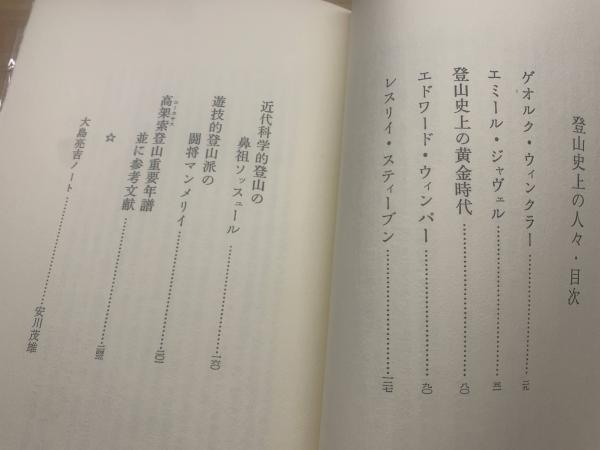 登山史上の人々・目次
ゲオルク・ウィンクラー……二九
エミール・ジャヴェル……五一
登山史上の黄金時代……八〇
エドワード・ウィンパー……九〇
レスリイ・スティーブン……一二七
近代科学的登山の
鼻祖ソッスュール……一六〇
遊技的登山派の
闘将マンメリイ……二〇一
高架索登山重要年譜
並に参考文献
☆
大島亮吉ノート……安川茂雄